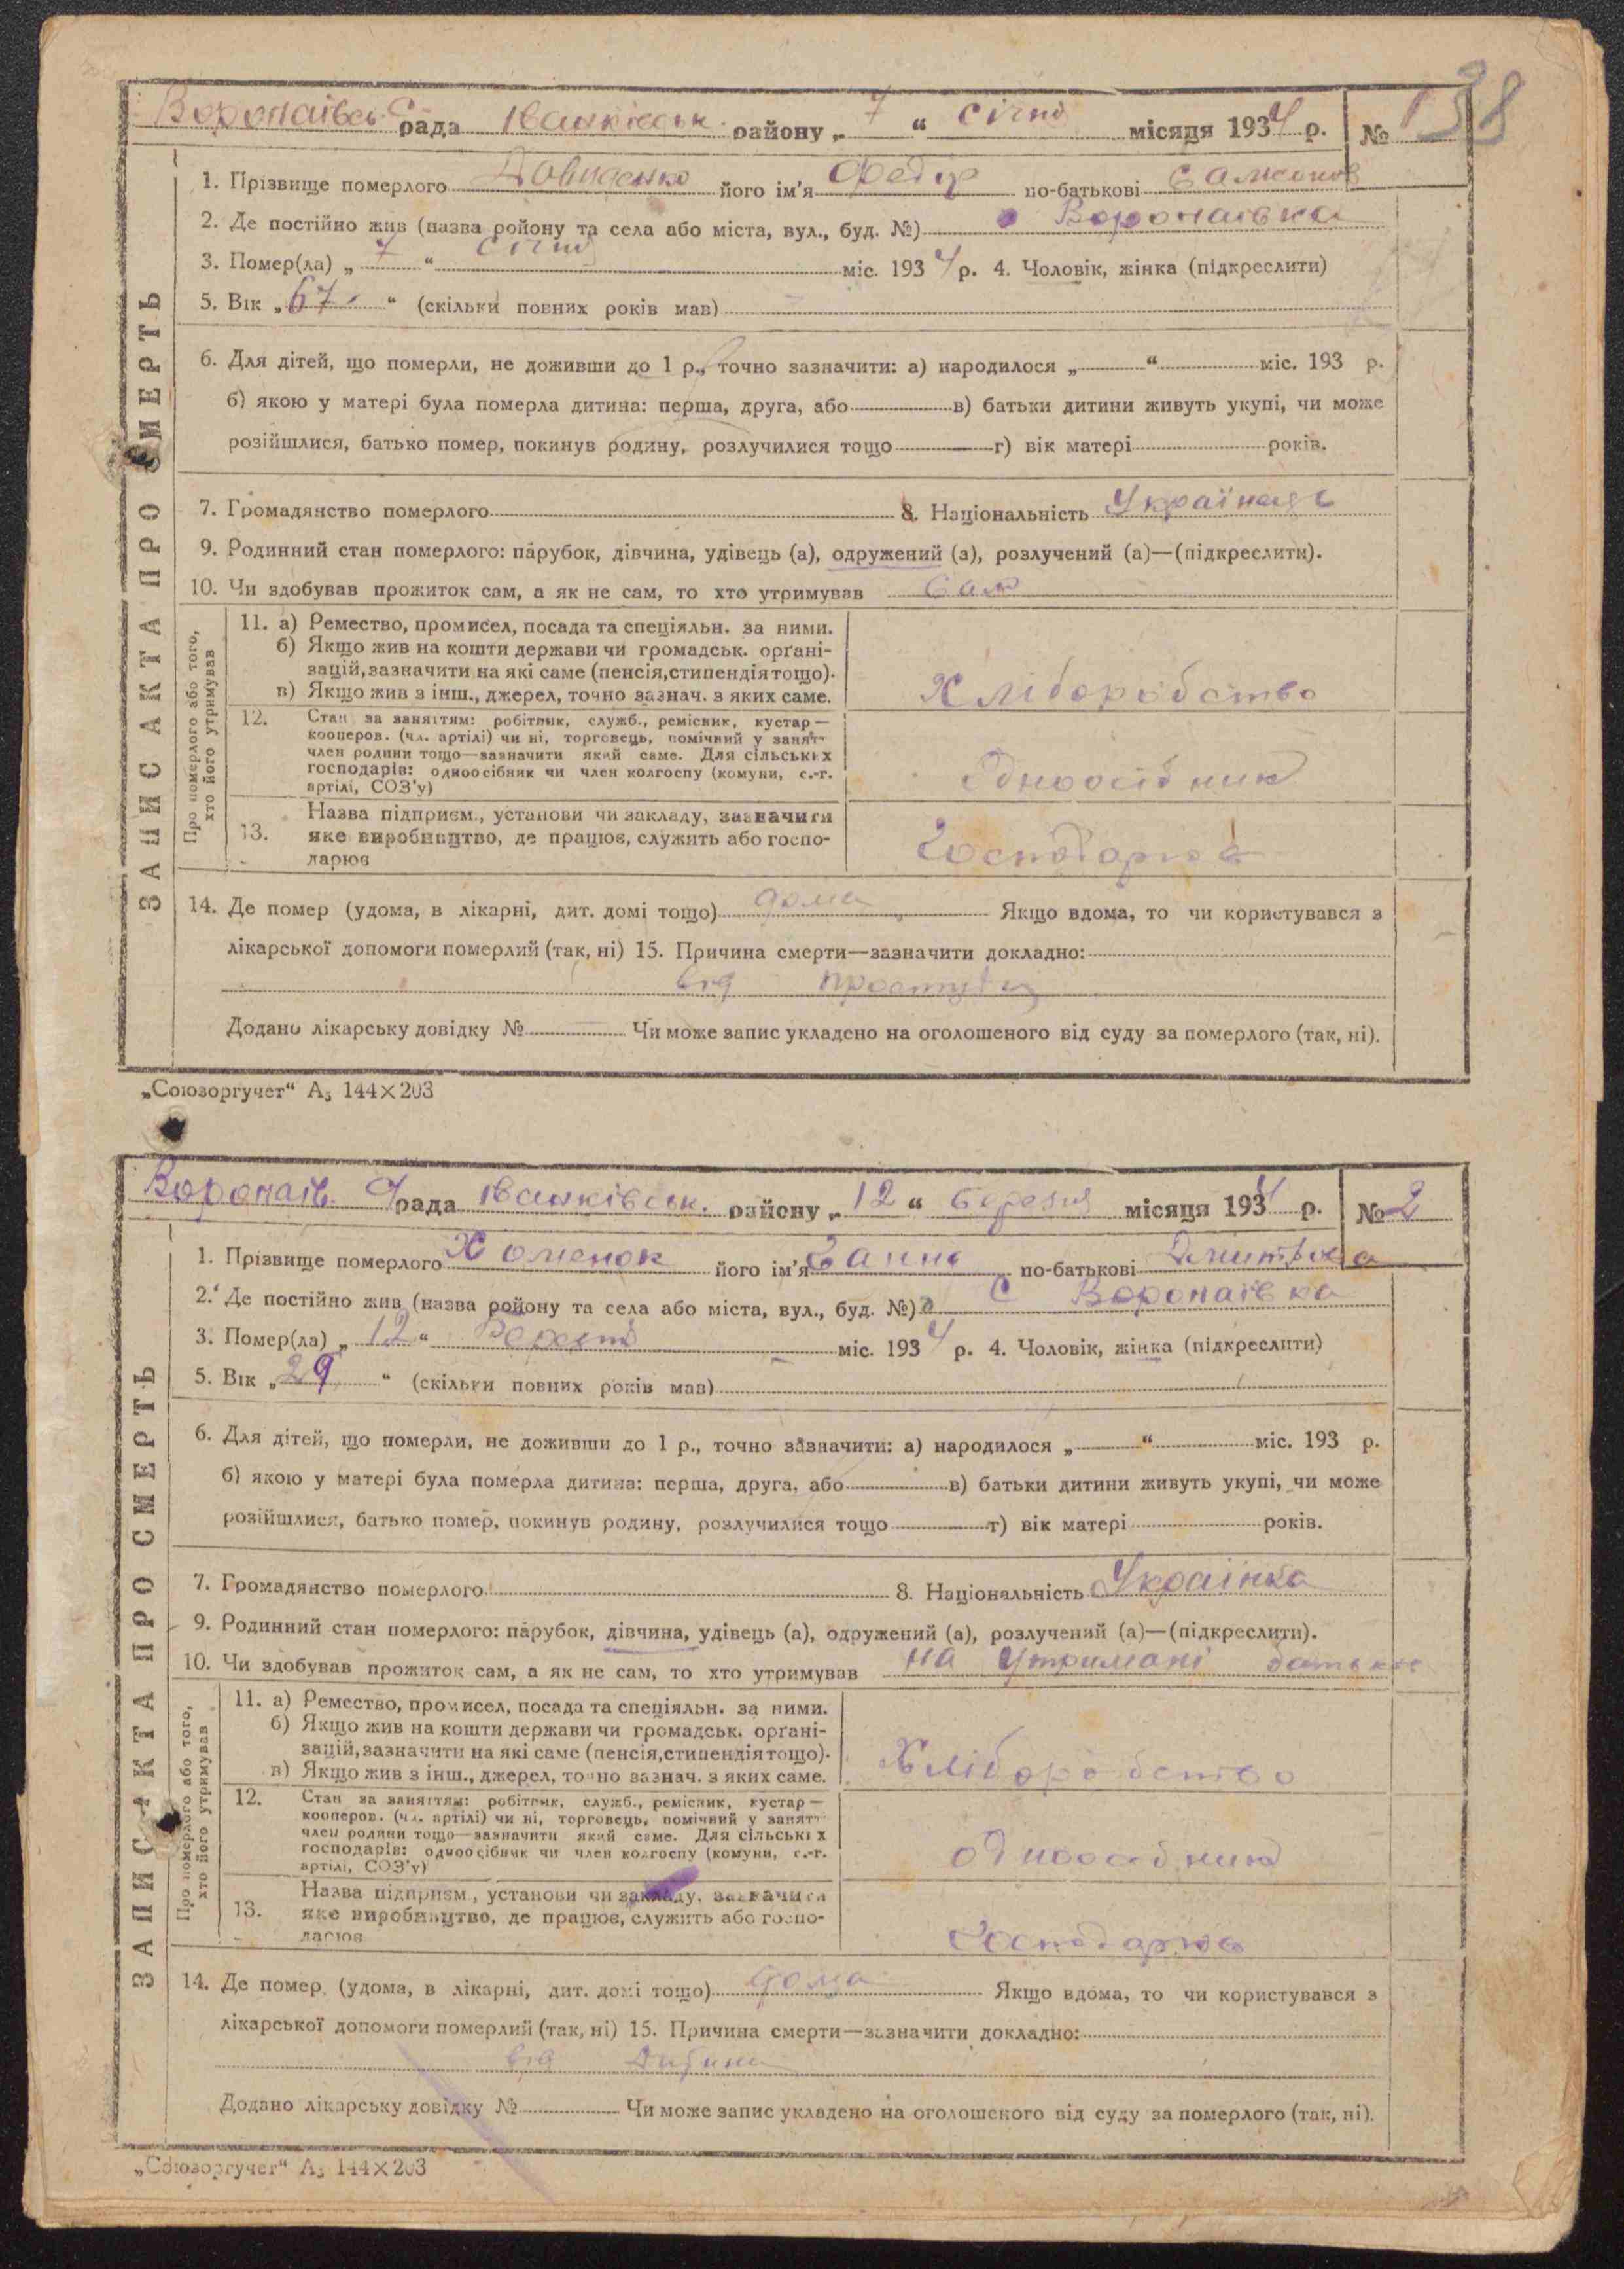 38
Воропаївсь. С. рада Іванківськ. району „ 7 “ січня місяця 1934 р. № 1
ЗАПИС АКТА ПРО СМЕРТЬ
1. Прізвище померлого Давиденко його ім'я Федір по-батькові
2. Де постійно жив (назва ройону та села або міста, вул., буд. №) Воропаївка
3. Помер(ла) „ 7 “ січня міс. 1934 р. 4. Чоловік, жінка (підкреслити)
5. Вік „ 67 “ (скільки повних років мав)
6. Для дітей, що померли, не доживши до 1 р., точно зазначити: а) народилося „ “ міс. 193 р.
б) якою у матері була померла дитина: перша, друга, або в) батьки дитини живуть укупі, чи може
розійшлися, батько помер, покинув родину, розлучилися тощо г) вік матері років.
7. Громадянство померлого 8. Національність Українець
9. Родинний стан померлого: парубок, дівчина, удівець (а), одружений (а), розлучений (а)—(підкреслити).
10. Чи здобував прожиток сам, а як не сам, то хто утримував Сам
Про померлого або того,
хто його утримував
11. а) Ремество, промисел, посада та спеціяльн. за ними.
б) Якщо жив на кошти держави чи громадськ. орґані-
зацій, зазначити на які саме (пенсія, стипендія тощо).
в) Якщо жив з інш., джерел, точно зазнач. з яких саме.
Хліборобство
12. Стан за заняттям: робітник, служб., ремісник, кустар—
кооперов. (чл. артілі) чи ні, торговець, помічний у занятт
член родини тощо—зазначити який саме. Для сільських
господарів: одноосібник чи член колгоспу (комуни, с.-г.
артілі, СОЗ'у)
Одноосібник
13. Назва підприєм., установи чи закладу, зазначити
яке виробництво, де працює, служить або госпо-
дарює
Господарює
14. Де помер (удома, в лікарні, дит. домі тощо) дома Якщо вдома, то чи користувався з
лікарської допомоги померлий (так, ні) 15. Причина смерти—зазначити докладно:
від простуди
Додано лікарську довідку № Чи може запис укладено на оголошеного від суду за померлого (так, ні).
„Союзоргучет“ А₅ 144×203
Воропаїв. С/рада Іванківськ. району „ 12 “ березня місяця 1934 р. № 2
ЗАПИС АКТА ПРО СМЕРТЬ
1. Прізвище померлого Хоменок його ім'я Ганна по-батькові Дмитрова
2. Де постійно жив (назва ройону та села або міста, вул., буд. №) С Воропаївка
3. Помер(ла) „ 12 “ міс. 1934 р. 4. Чоловік, жінка (підкреслити)
5. Вік „ 29 “ (скільки повних років мав)
6. Для дітей, що померли, не доживши до 1 р., точно зазначити: а) народилося „ “ міс. 193 р.
б) якою у матері була померла дитина: перша, друга, або в) батьки дитини живуть укупі, чи може
розійшлися, батько помер, покинув родину, розлучилися тощо г) вік матері років.
7. Громадянство померлого 8. Національність Українка
9. Родинний стан померлого: парубок, дівчина, удівець (а), одружений (а), розлучений (а)—(підкреслити).
10. Чи здобував прожиток сам, а як не сам, то хто утримував на утримані батька
Про померлого або того,
хто його утримував
11. а) Ремество, промисел, посада та спеціяльн. за ними.
б) Якщо жив на кошти держави чи громадськ. орґані-
зацій, зазначити на які саме (пенсія, стипендія тощо).
в) Якщо жив з інш., джерел, точно зазнач. з яких саме.
Хліборобство
12. Стан за заняттям: робітник, служб., ремісник, кустар—
кооперов. (чл. артілі) чи ні, торговець, помічний у занятт
член родини тощо—зазначити який саме. Для сільських
господарів: одноосібник чи член колгоспу (комуни, с.-г.
артілі, СОЗ'у)
одноосібник
13. Назва підприєм., установи чи закладу, зазначити
яке виробництво, де працює, служить або госпо-
дарює
Господарює
14. Де помер (удома, в лікарні, дит. домі тощо) дома Якщо вдома, то чи користувався з
лікарської допомоги померлий (так, ні) 15. Причина смерти—зазначити докладно:
від
Додано лікарську довідку № Чи може запис укладено на оголошеного від суду за померлого (так, ні).
„Союзоргучет“ А₅ 144×203